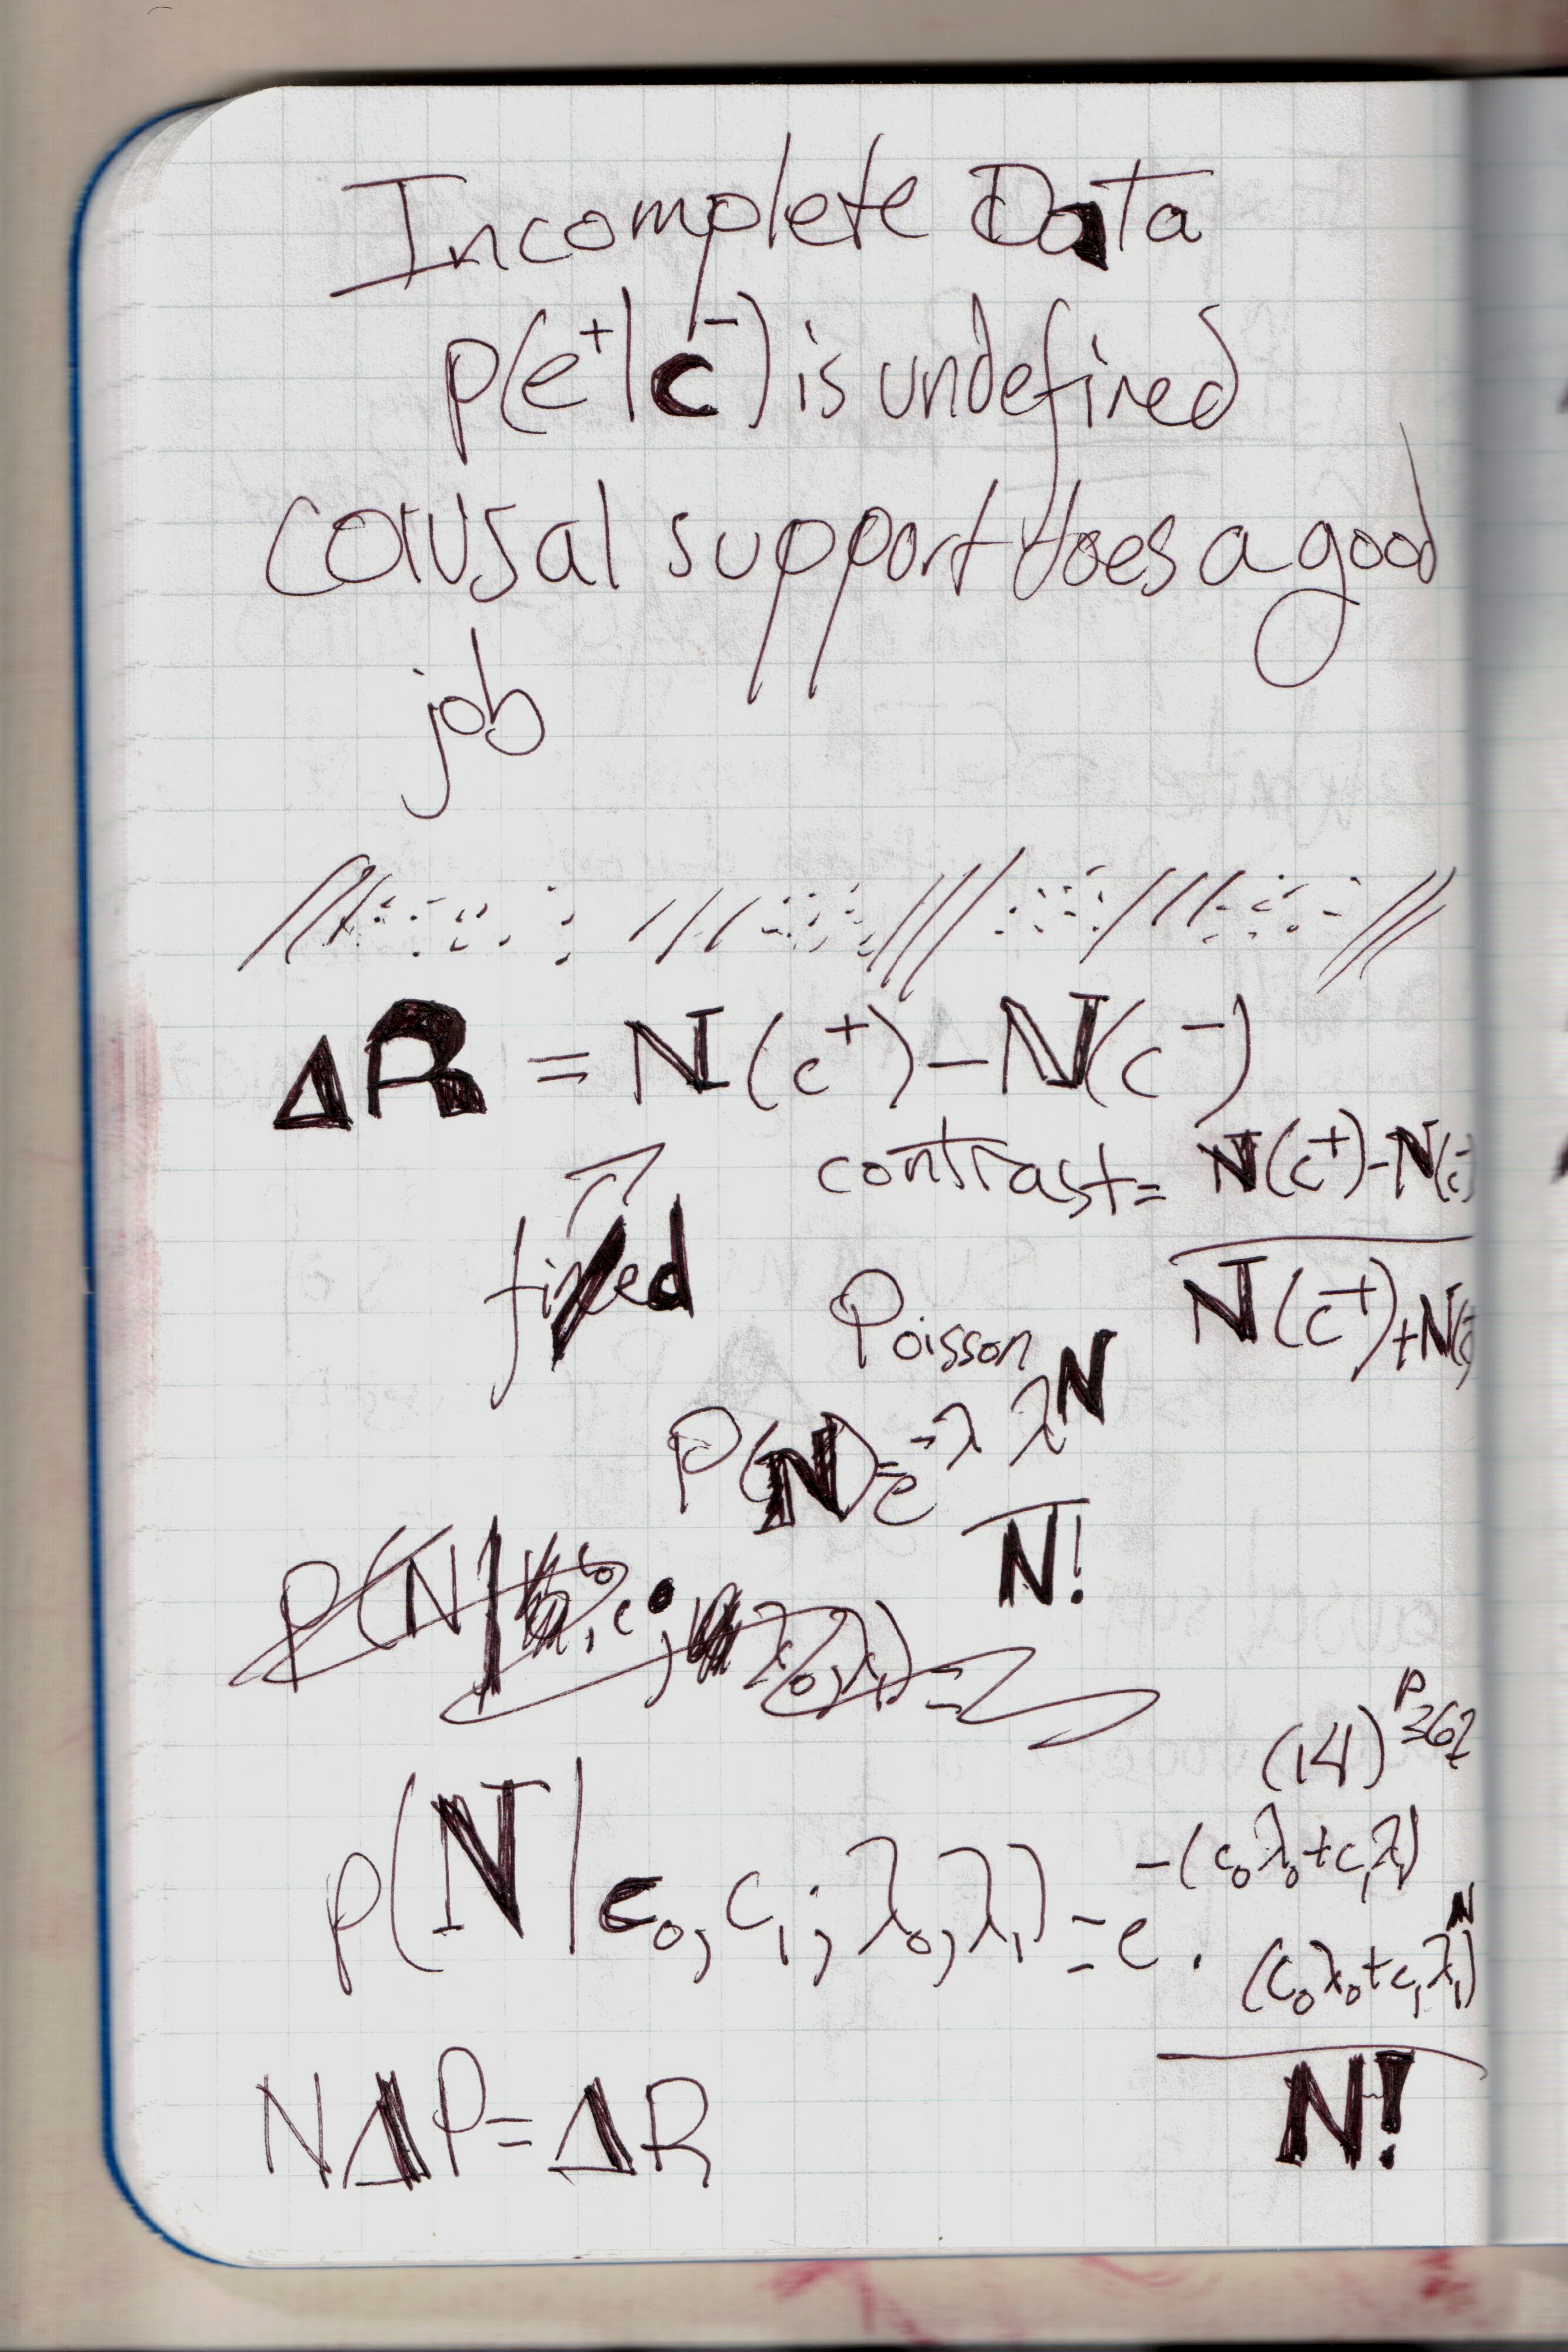 Incomplete Data
p(e⁺|c⁻) is undefined
causal support does a good
job
ΔR = N(c⁺) - N(c⁻)
contrast = N(c⁺) - N(c⁻)
N(c⁺) + N(c⁻)
fixed
Poisson
P(N) = e^-λ λ^N
N!
(14) P362
p(N|c₀, c₁; λ₀, λ₁) = e^-(c₀λ₀ + c₁λ₁) · (c₀λ₀ + c₁λ₁)^N
N!
NΔP = ΔR